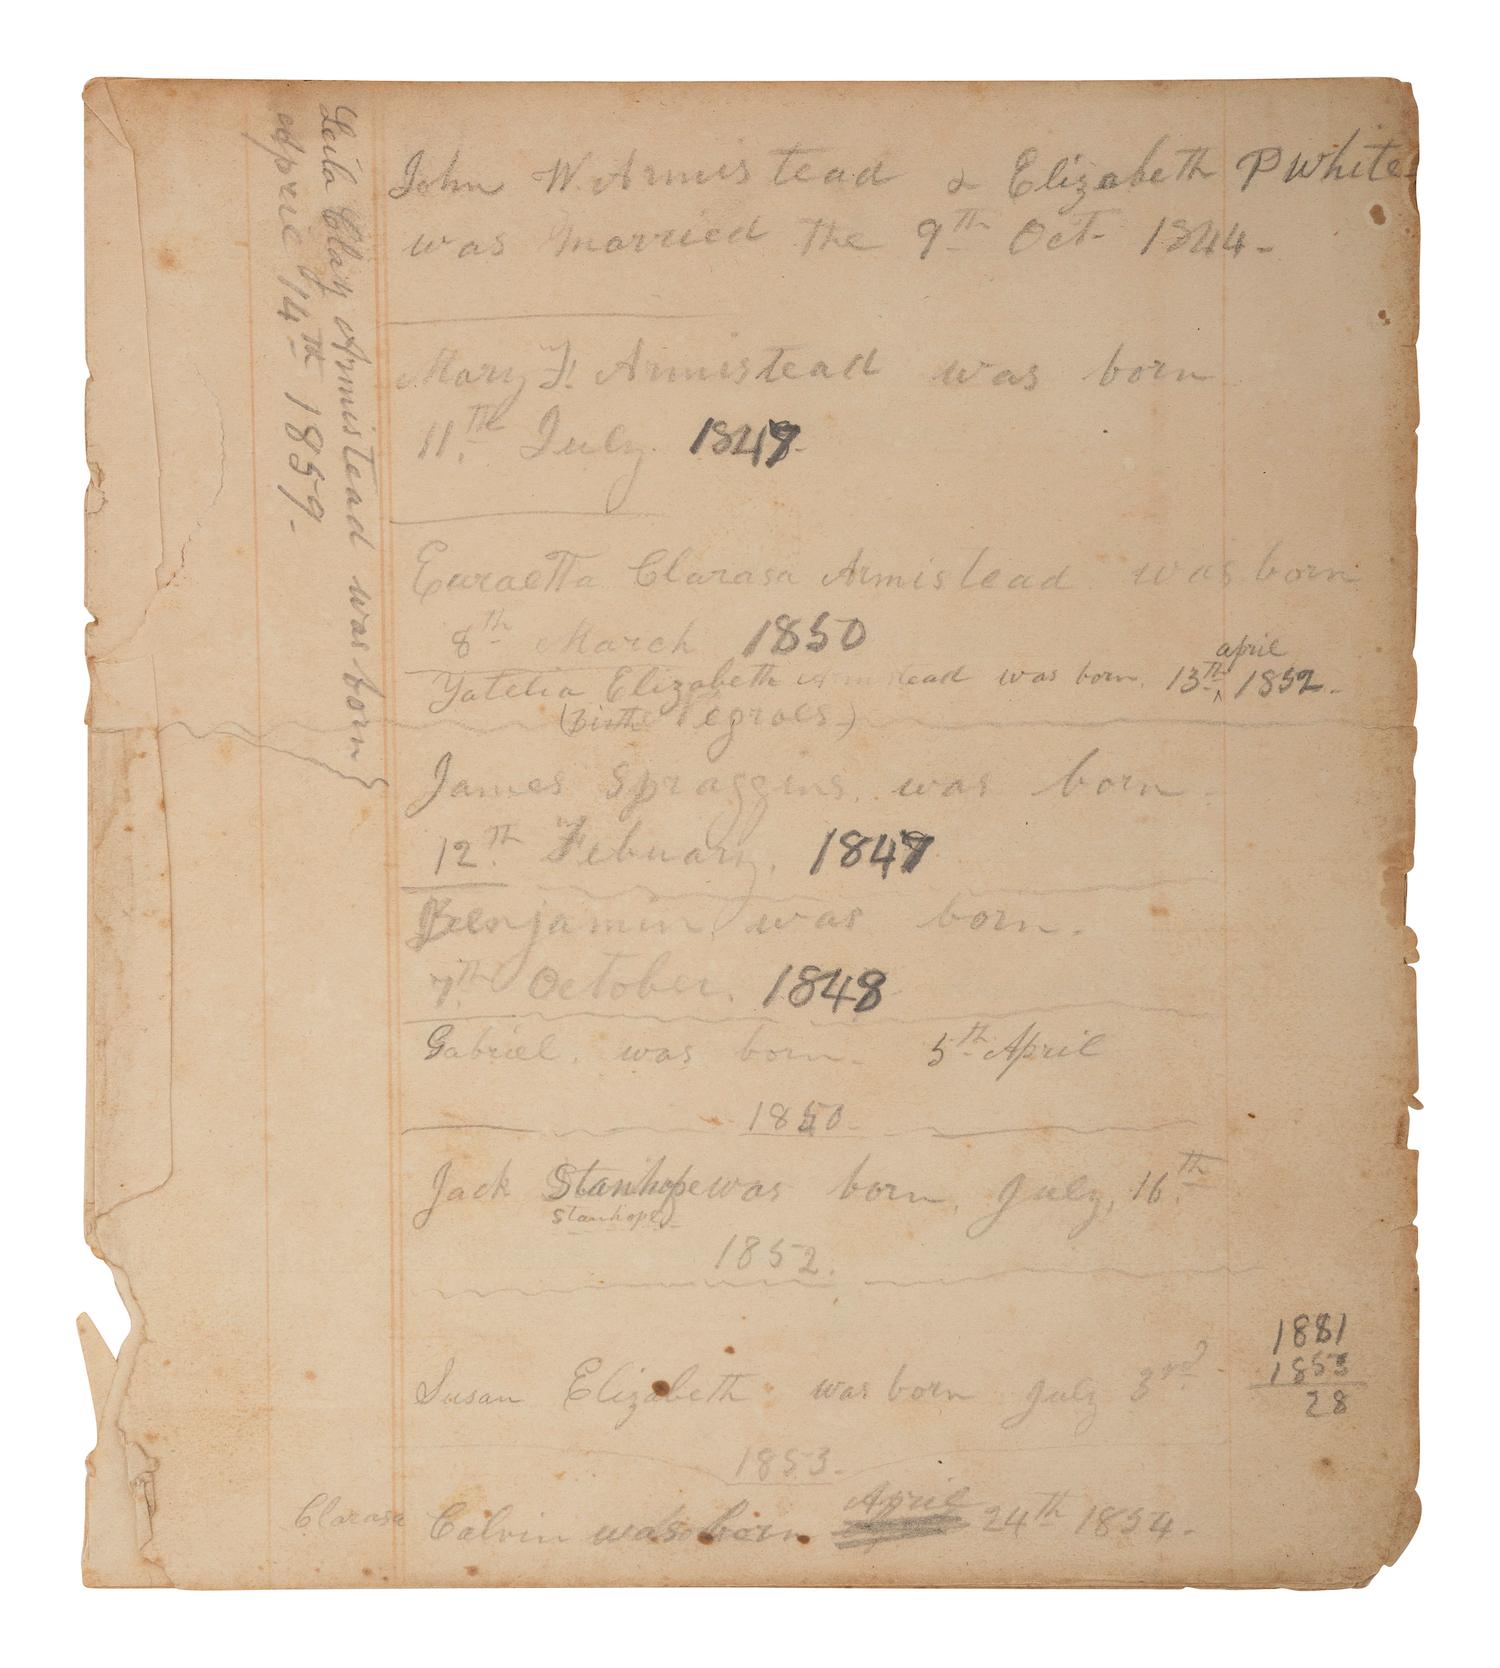 John W. Armistead & Elizabeth P White
was married the 9th Oct- 1844-
Mary F. Armistead was born
11th July 1847-
Euraetta Clarasa Armistead was born
8th March 1850
april
Elizabeth Armistead was born. 13th ^ 1852-
(Birth Negroes-)
James Spraggins. was born.
12th Febuary. 1847
Benjamin was born.
7th October. 1848
Gabriel. was born. 5th April
1850-
Jack Stanhope was born, July, 16th
Stanhope
1852.
1881
1853
28
Susan Elizabeth was born July 3rd-
1853-
April
Clarasa Calvin was born 24th 1854-
Leila Clay Armistead was born
April 14th 1859-